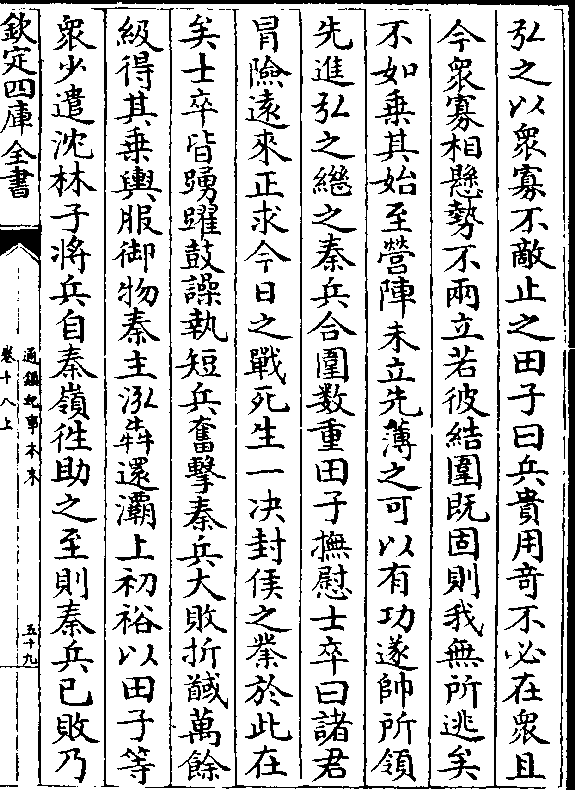 弘之以衆寡不敵止之田子曰兵貴用竒不必在衆且
今衆寡相懸勢不兩立若彼結圍既固則我無所逃矣
不如乗其始至營陣未立先薄之可以有功遂帥所領
先進弘之繼之秦兵合圍数重田子撫慰士卒曰諸君
冒險逺來正求今日之戰死生一决封侯之業於此在
矣士卒皆踴躍鼓譟執短兵奮擊秦兵大敗折馘萬餘
級得其乗輿服御物秦主泓犇還灞上初裕以田子等
衆少遣沈林子将兵自秦嶺徃助之至則秦兵已敗乃
欽定四庫全書
通鑑紀事本末
卷十八上
五十九